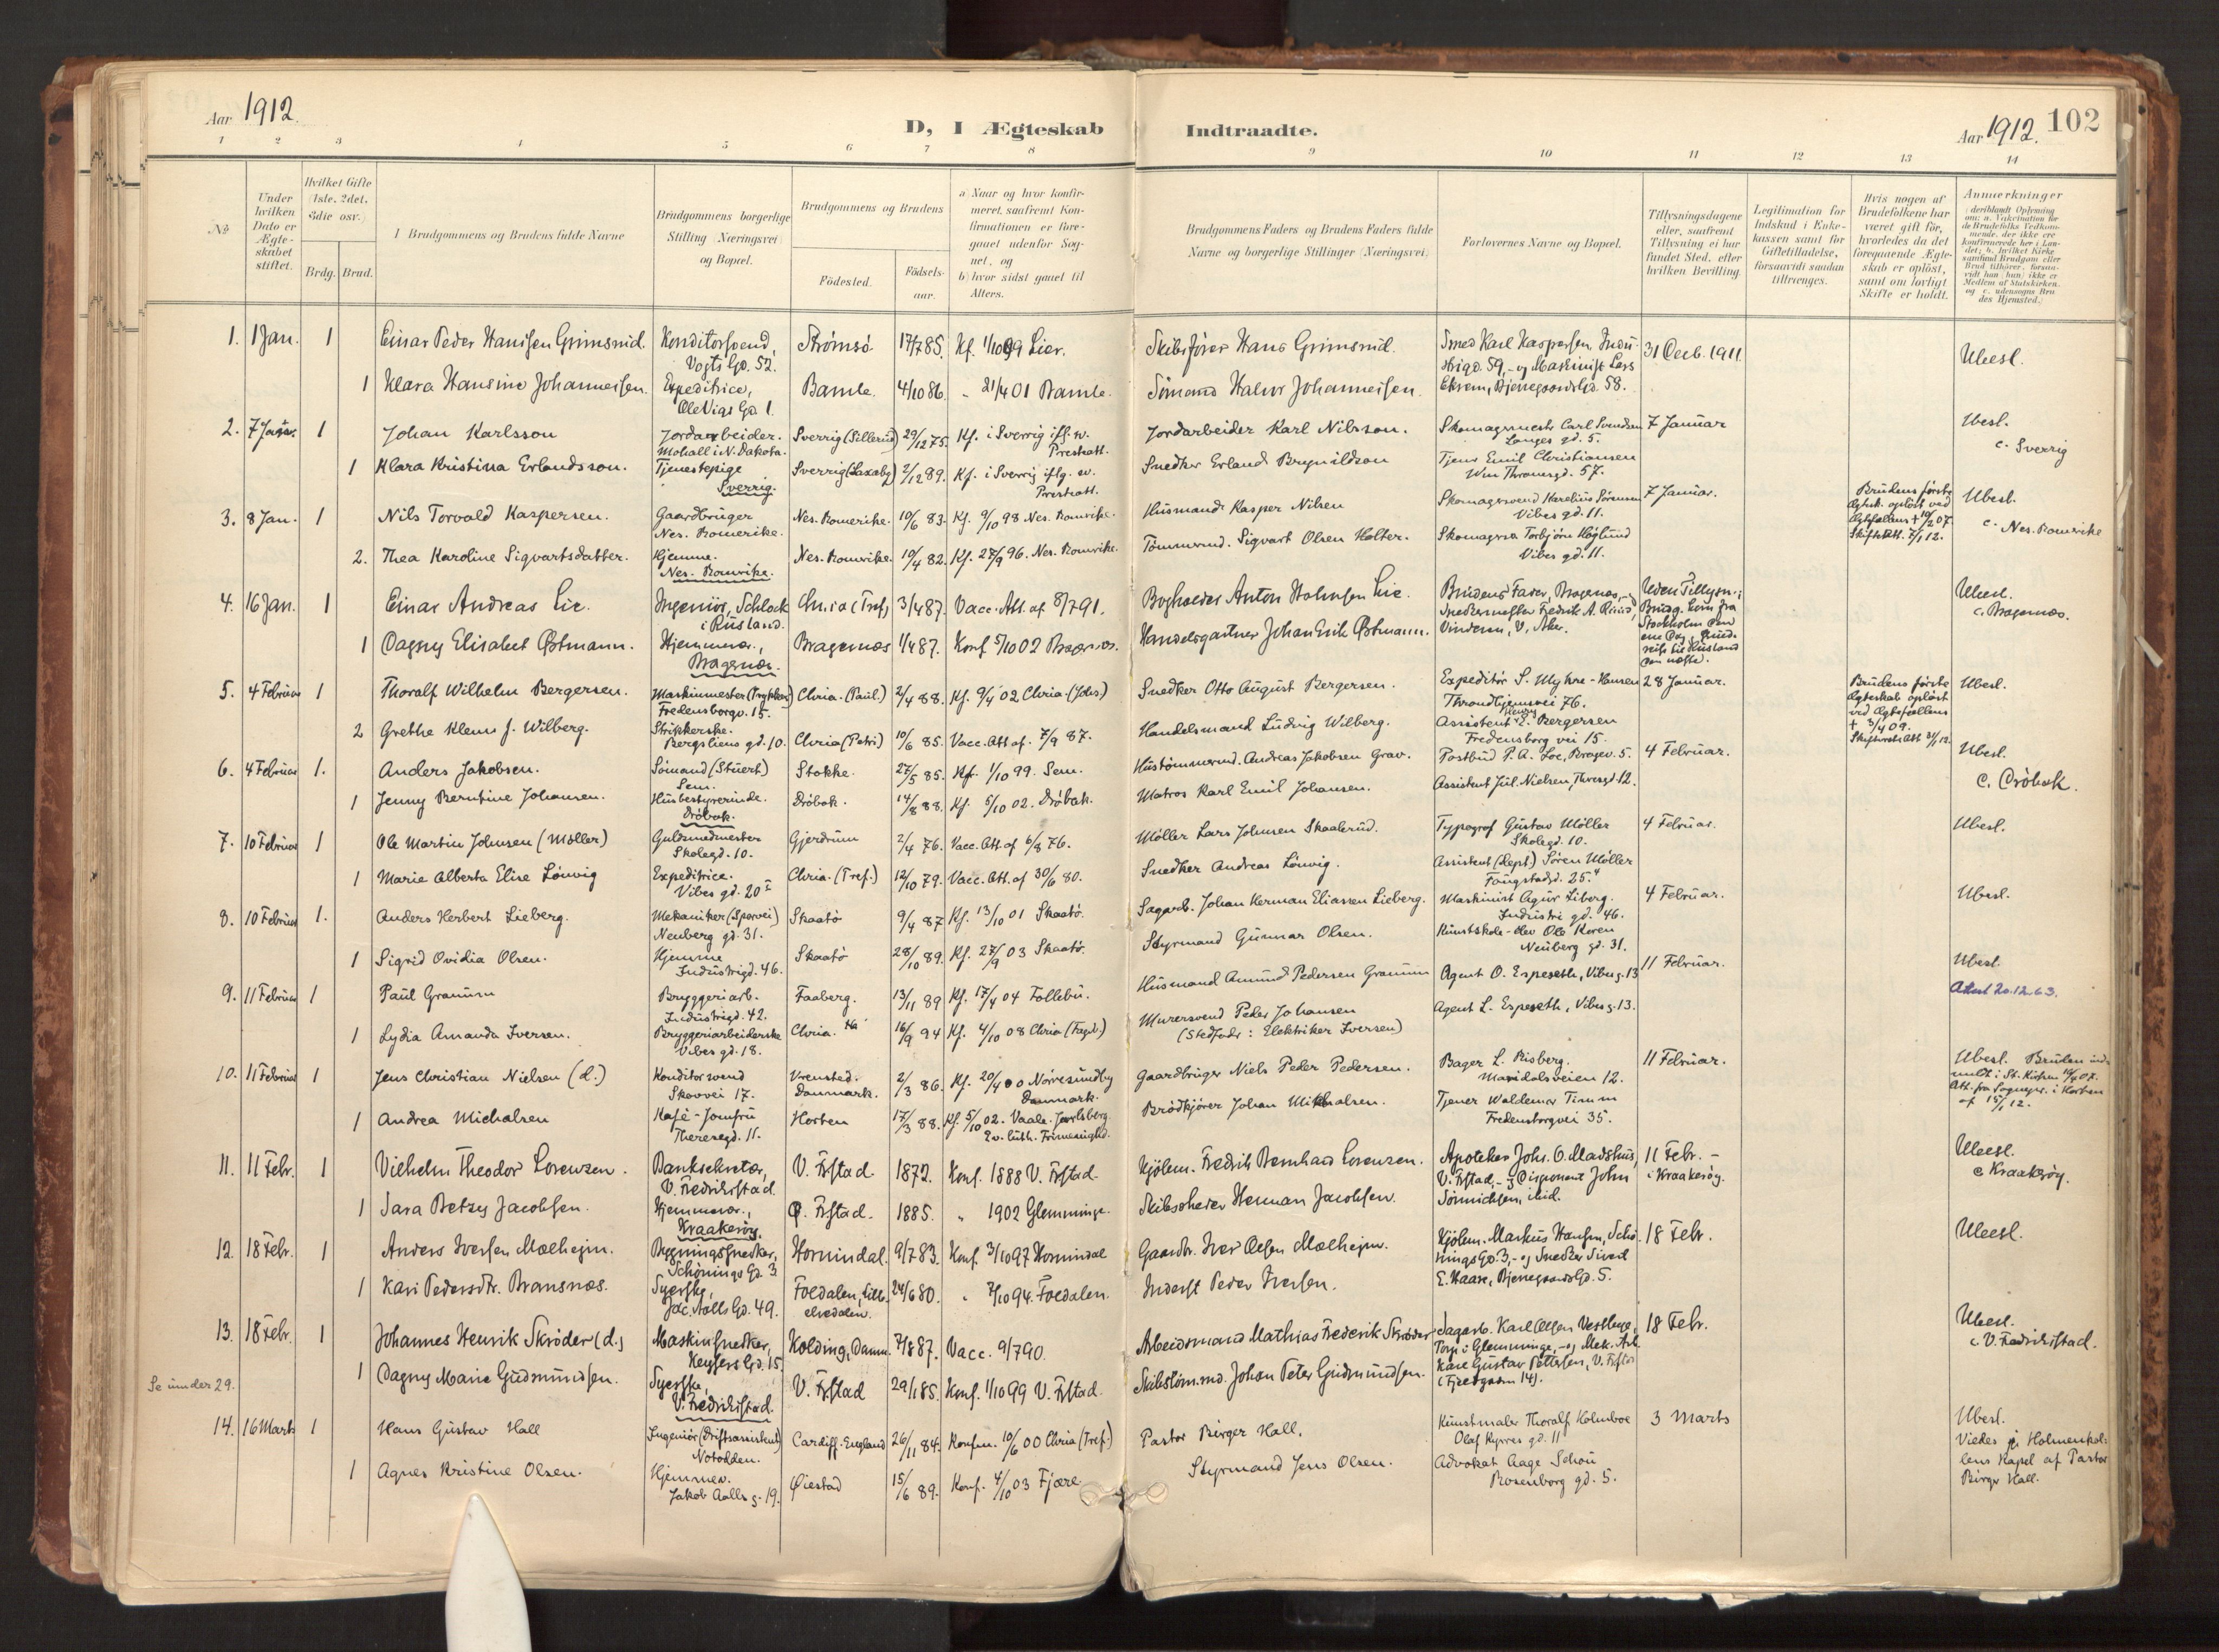 Aar 1912.
D, I Ægteskab Indtraadte.
Aar 1912. 102
1 2 3 4 5 6 7 8 9 10 11 12 13 14
№
Under hvilken Dato er Ægteskabet stiftet.
Hvilket Gifte (1ste, 2det, 3die osv.)
Brdg. Brud.
Brudgommens og Brudens fulde Navne
Brudgommens borgerlige Stilling (Næringsvei) og Bopæl.
Brudgommens og Brudens
Fødested.
Fødsels-aar.
a) Naar og hvor konfir-
meret, saafremt Kon-
firmationen er fore-
gaaet udenfor Sog-
net, og
b) hvor sidst gaaet til
Alters.
Brudgommens Faders og Brudens Faders fulde
Navne og borgerlige Stillinger (Næringsvei)
Forlovernes Navne og Bopæl.
Tillysningsdagene
eller, saafremt
Tillysning ei har
fundet Sted, efter
hvilken Bevilling.
Legitimation for
Indskud i Enke-
kassen samt for
Giftetilladelse,
forsaavidt saadan
tiltrænges.
Hvis nogen af
Brudefolkene har
været gift før,
hvorledes da det
foregaaende Ægte-
skab er opløst,
samt om lovligt
Skifte er holdt.
Anmerkninger
1. 1 Jan. 1 Einar Peder Hansen Grimsrud. Konditorsvend, Vogts Gd. 52. Strømsø 17/7 85. Kf. 1/10 99 Lier. Skibsfører Hans Grimsrud. Smed Karl Kaspersen, Indu-
strigd. 59, - og Maskinist Lars
31 Decb. 1911 Ubesl.
1 Klara Hansine Johannesen. Expeditrice, Ole Vigs Gd. 1. Bamle. 4/10 86. " 21/4 01 Bamle. Sømand Halvor Johannesen. Bjerregaards Gd. 58.
2. 7 Januar. 1 Johan Karlsson Jordarbeider. Mohall i N. Dakota. Sverrig (Sillerud) 29/12 75. Kf. i Sverrig ifl. sv. Prestatt. Jordarbeider Karl Nilsson. Skomagermester Carl Svendsen
Langes gd. 5. 7 Januar Ubesl.
c. Sverrig
1 Klara Kristina Erlandsson. Tjenestepige Sverrig. Sverrig (Laxaby) 2/12 89. Kf. i Sverrig iflg. sv. Prestatt. Snedker Erland Brynildson Tjener Emil Christiansen
Wm Thranesgd. 57.
3. 8 Jan. 1 Nils Torvald Kaspersen. Gaardbruger Nes. Romerike. Nes. Romerike. 10/6 83. Kf. 9/10 98 Nes. Romerike. Husmand Kasper Nilsen Skomagersvend Karelius Sørensen
Vibes gd. 11. 7 Januar. Brudens første
Ægtesk. opløst ved
Ægtefællens + 10/2 07.
Skifteatt. 7/1 12. Ubesl.
c. Nes. Romerike
2. Thea Karoline Sigvartsdatter. Hjemme. Nes. Romerike. Nes. Romerike. 10/4 82. Kf. 27/9 96. Nes. Romerike. Tømmermd. Sigvart Olsen Holter. Torbjørn Höglund
Vibes gd. 11.
4. 16 Jan. 1 Einar Andreas Lie. Ingeniør, Schlock i Rusland. Chr.ia (Tref.) 3/4 87. Vacc. Att. af 8/7 91. Bogholder Anton Lie. Brudens Fader, Bragernæs,
Snedkermester Fredrik A.
Vinderen, V. Aker. Uden Tillysn.:
Brudg. kom fra
Stockholm den
ene Dag,
reise til Rusland
den næste. Ubesl.
c. Bragernæs.
1 Dagny Elisabet Østmann. Hjemmevær., Bragernæs. Bragernæs 1/4 87. Konf 5/10 02 Bragernæs. Handelsgartner Johan Erik Østmann.
5. 4 Februar 1 Thoralf Wilhelm Bergersen. Maskinmester (Trykkeri) Fredensborgv. 15. Chria. (Paul.) 2/4 88. Kf. 9/4 02 Chria (Johs) Snedker Otto August Bergersen. Expeditør S. Myhre-Hansen
Throndhjemsvei 76. 28 Januar. Brudens første
Ægteskab opløst
ved Ægtefællens
+ 3/4 09.
Skifteretsatt 31/1 12. Ubesl.
2 Grethe Klem f. Wilberg. Strikkerske. Bergsliens gd. 10. Chria (Petri) 10/6 85. Vacc. Att af. 7/9 87. Handelsmand Ludvig Wilberg. Assistent Henry E. Bergersen
Fredensborg vei 15.
6. 4 Februar 1. Anders Jakobsen. Sømand (Stuert) Sem. Stokke. 27/5 85. Kf. 1/10 99. Sem. Hustømmermd. Andreas Jakobsen Grav. Postbud P. A. Loe, 4 Februar. Ubesl.
c. Drøbak.
1 Jenny Berntine Johansen. Husbestyrerinde. Drøbak. Drøbak. 14/8 88. Kf. 5/10 02. Drøbak. Matros Karl Emil Johansen. Assistent Jul. Nielsen, Theresgd. 12.
7. 10 Februar 1 Ole Martin Johnsen (Møller) Guldsmedmester Skolegd. 10. Gjerdrum 2/4 76. Vacc. Att. af 6/8 76. Møller Lars Johnsen Skaalerud. Typograf Gustav Møller
Skolegd. 10. 4 Februar. Ubesl.
1 Marie Alberta Elise Lønvig Expeditrice. Vibes gd. 20 I Chria. (Tref.) 12/10 79. Vacc. Att. af 30/6 80. Snedker Andreas Lønvig. Assistent (Dept.) Søren Møller
Fougstadgd. 25.4
8. 10 Februar 1. Anders Herbert Lieberg. Mekaniker (Sporvei) Neuberg gd. 31. Skaatø 9/4 87 Kf. 13/10 01 Skaatø. Sagarb. Johan Herman Eliassen Lieberg. Maskinist Agur Liberg.
Industri gd. 46. 4 Februar. Ubesl.
1 Sigrid Ovidia Olsen. Hjemme Industrigd. 46. Skaatø 28/10 89. Kf. 27/9 03 Skaatø. Styrmand Gunnar Olsen. Kunstskole-elev Ole Keren
Neuberg gd. 31.
9. 11 Februar 1 Paul Granum Bryggeriarb. Industrigd. 42. Faaberg. 13/11 89 Kf. 17/4 04 Follebu. Husmand Amund Pedersen Granum Agent O. Espeseth, Vibesg. 13 11 Februar. Ubesl.
Attest 20.12.63.
1 Lydia Amanda Iversen. Bryggeriarbeiderske Vibes gd. 18. Chria. 16/9 94 Kf. 4/10 08 Chria (Fagb.) Murersvend Peder Johansen
(Stedfader: Elektriker Iversen) Agent L. Espeseth, Vibesg. 13.
10. 11 Februar 1 Jens Christian Nielsen (d.) Konditorsvend Skovvei 17. Vrensted. Danmark. 2/3 86. Kf. 20/4 00 Nørresundby Danmark. Gaardbruger Niels Peder Pedersen. Bager L. Risberg.
Maridalsveien 12. 11 Februar. Ubesl. Bruden ind-
meldt i St. Kirken 14/4 07.
Att. fra Sognepr. i Horten
af 15/1 12.
1 Andrea Michalsen Kafé-Jomfru Theresegd. 11. Horten 17/3 88. Kf. 5/10 02. Vaale. Jarlsberg.
Ev. luth. Frimenighd. Brødkjører Johan Mikkalsen. Tjener Waldemar Timm
Fredensborgvei 35.
11. 11 Febr. 1 Vilhelm Theodor Lorenzen. Banksekretær, V. Fredrikstad. V. Frstad 1872. Konf. 1888 V. Frstad. Kjøbm. Fredrik Bernhard Lorenzen. Apoteker Johs. O. Madshus,
V. Frstad, - og Disponent John
Sønnichsen, ibid. 11 Febr. -
i Kraakerøy. Ubesl.
c Kraakerøy.
1 Sara Betzy Jacobsen. Hjemmevær., Kraakerøy. Ø. Frstad. 1885. " 1902 Glemminge. Skibsreder Herman Jacobsen.
12. 18 Febr. 1 Anders Iversen Mælheim. Bygningssnedker, Schönings Gd. 3. Hornindal. 9/7 83. Konf. 3/10 97 Hornindal Gaardbr. Iver Olsen Mælheim. Kjøbm. Markus Hansen, Schø-
nings Gd. 3, - og Snedker Sivert
E. Haase, Bjerregaards Gd. 5. 18 Febr. Ubesl.
1 Kari Pedersdtr. Bransnæs. Syerske, Jac. Aalls Gd. 49. Foldalen, Lille-
elvedalen. 24/6 80. " 7/10 94. Foldalen. Inderst Peder Iversen.
13. 18 Febr. 1 Johannes Henrik Skrøder (d.) Maskinsnedker, Keysers Gd. 15. Kolding, Danm. 7/8 87. Vacc. 9/7 90. Arbeidsmand Mathias Frederik Skrøder Sagarb. Karl Olsen
Torp i Glemminge, - og Mek. Arb.
Kare Gustav Pettersen, V. Frstad
18 Febr. Ubesl.
c. V. Fredrikstad.
Se under 29.
1 Dagny Marie Gudmundsen. Syerske, V. Fredrikstad. V. Frstad 29/1 85. Konf. 1/10 99 V. Frstad. Skibstømmmd. Johan Peter Gudmundsen.
14. 16 Marts 1 Hans Gustav Hall Ingeniør (Driftsassistent) Notodden. Cardiff. England 26/11 84. Konfm. 10/6 00 Chria (Tref.) Pastor Birger Hall. Kunstmaler Thoralf Holmboe
Olaf Kyrres gd. 11 3 Marts Ubesl.
Viedes i Holmenkol-
lens Kapel af Pastor
Birger Hall.
1 Agnes Kristine Olsen. Hjemmev. Jakob Aalls g. 19. Øiestad 15/6 89. Konf. 4/10 03 Fjære. Styrmand Jens Olsen. Advokat Aage Schou
Rosenborg gd. 5.